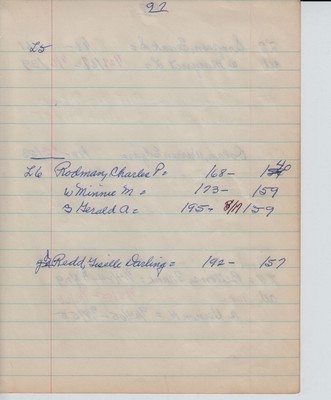 92
L5
L6 Rodman, Charles P = 168- 
W Minnie M = 173- 159
S Gerald A = 195- 8/19 159
Redd, Lucille Darling = 192- 157